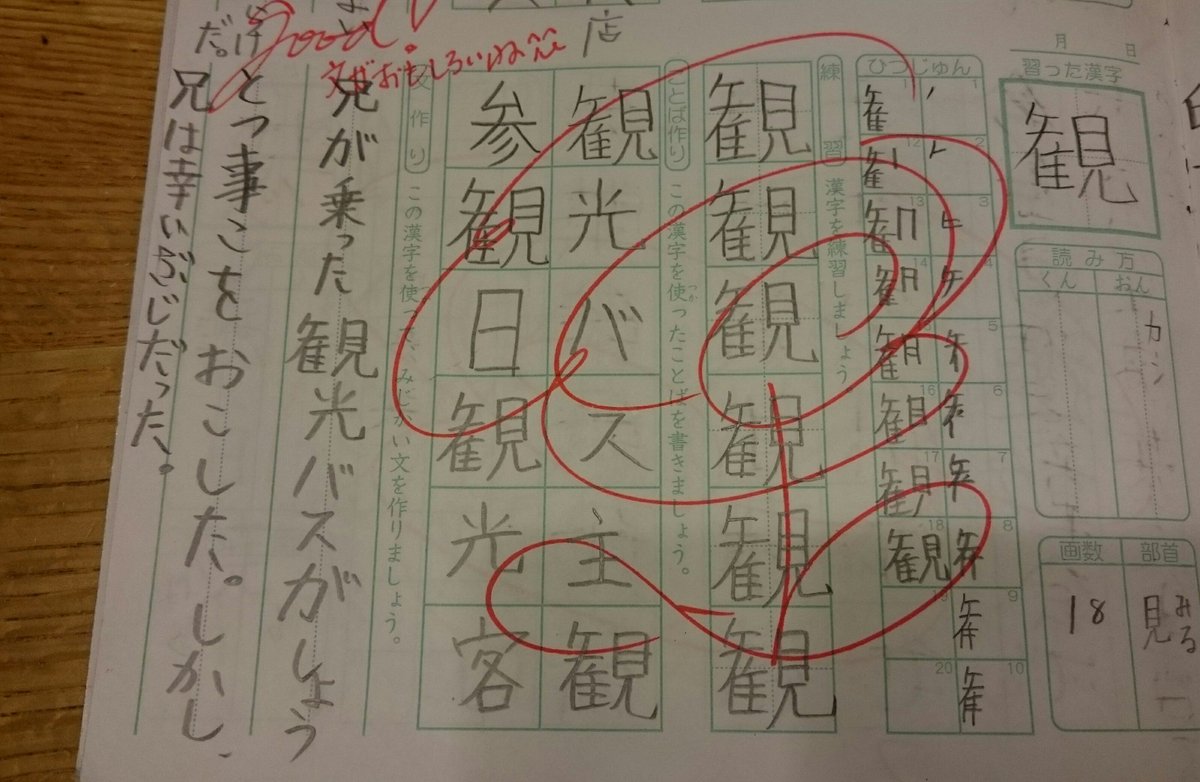 月 日
習った漢字
観
読み方
おん
カン
くん
部首
見
みる
画数
18
ひつじゅん
練習 漢字を練習しましょう
観観観観観観
ことば作り この漢字を使ったことばを書きましょう。
観光バス主観
参観日観光客
店
文作り この漢字を使って、みじかい文を作りましょう。
Good!
文がおもしろいね
兄が乗った観光バスがしょう
とつ事こをおこした。しかし、
兄は幸いぶじだった。
だ。